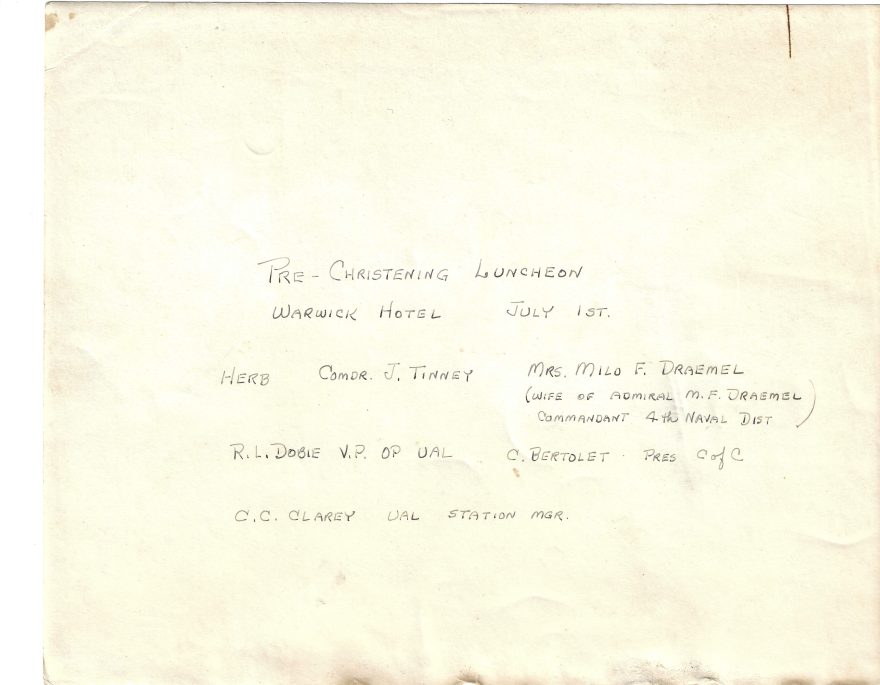 PRE - CHRISTENING LUNCHEON
WARWICK HOTEL JULY 1ST.
HERB COMDR. J. TINNEY MRS. MILO F. DRAEMEL
(WIFE OF ADMIRAL M. F. DRAEMEL)
COMMANDANT 4th NAVAL DIST
R. L. DOBIE V.P. OP UAL C. BERTOLET · PRES C of C
C. C. CLAREY UAL STATION MGR.